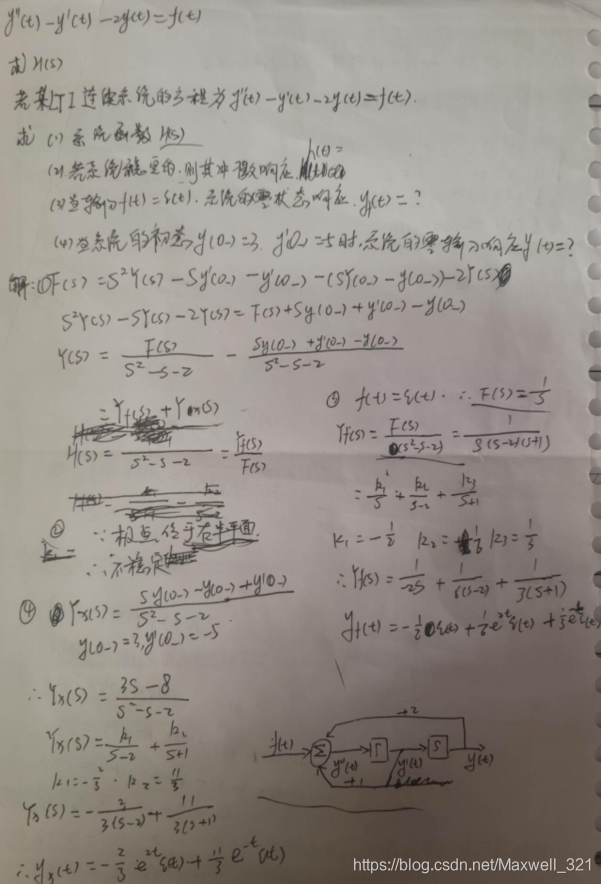 y''(t)-y'(t)-2y(t)=f(t)
求H(s)
若某LTI连续系统的方程为y''(t)-y'(t)-2y(t)=f(t).
求 (1) 系统函数H(s)
(2) 若系统稳定的,则其冲激响应 h(t)=
(3) 当输入f(t)=ε(t), 系统的零状态响应 yf(t)=?
(4) 当系统的初态y(0-)=3, y'(0-)=-5时,系统的零输入响应y(t)=?
解:① F(s)=S²Y(s)-Sy(0-)-y'(0-)-(SY(s)-y(0-))-2Y(s)
S²Y(s)-SY(s)-2Y(s)=F(s)+Sy(0-)+y'(0-)-y(0-)
Y(s)= F(s)/(S²-S-2) - (Sy(0-)+y'(0-)-y(0-))/(S²-S-2)
=Yf(s)+Yx(s)
H(s)= 1/(S²-S-2) = Yf(s)/F(s)
② ∵极点位于右半平面.
∴不稳定
③ f(t)=ε(t). ∴F(s)=1/S
Yf(s)= F(s)/(S²-S-2) = 1/(S(S-2)(S+1))
= k1/S + k2/(S-2) + k3/(S+1)
k1=-1/2 k2=1/6 k3=1/3
∴Yf(s)= 1/-2S + 1/6(S-2) + 1/3(S+1)
yf(t)=-1/2 ε(t)+1/6 e^2t ε(t)+1/3 e^-t ε(t)
④ Yx(s)= (Sy(0-)-y(0-)+y'(0-))/(S²-S-2)
y(0-)=3, y'(0-)=-5
∴Yx(s)= (3S-8)/(S²-S-2)
Yx(s)= k1/(S-2) + k2/(S+1)
k1=-2/3 . k2=11/3
Yx(s)=-2/3(S-2) + 11/3(S+1)
∴yx(t)=-2/3 e^2t ε(t)+11/3 e^-t ε(t)
+2
f(t) Σ y''(t) ∫ y'(t) ∫ y(t)
+1
https://blog.csdn.net/Maxwell_321